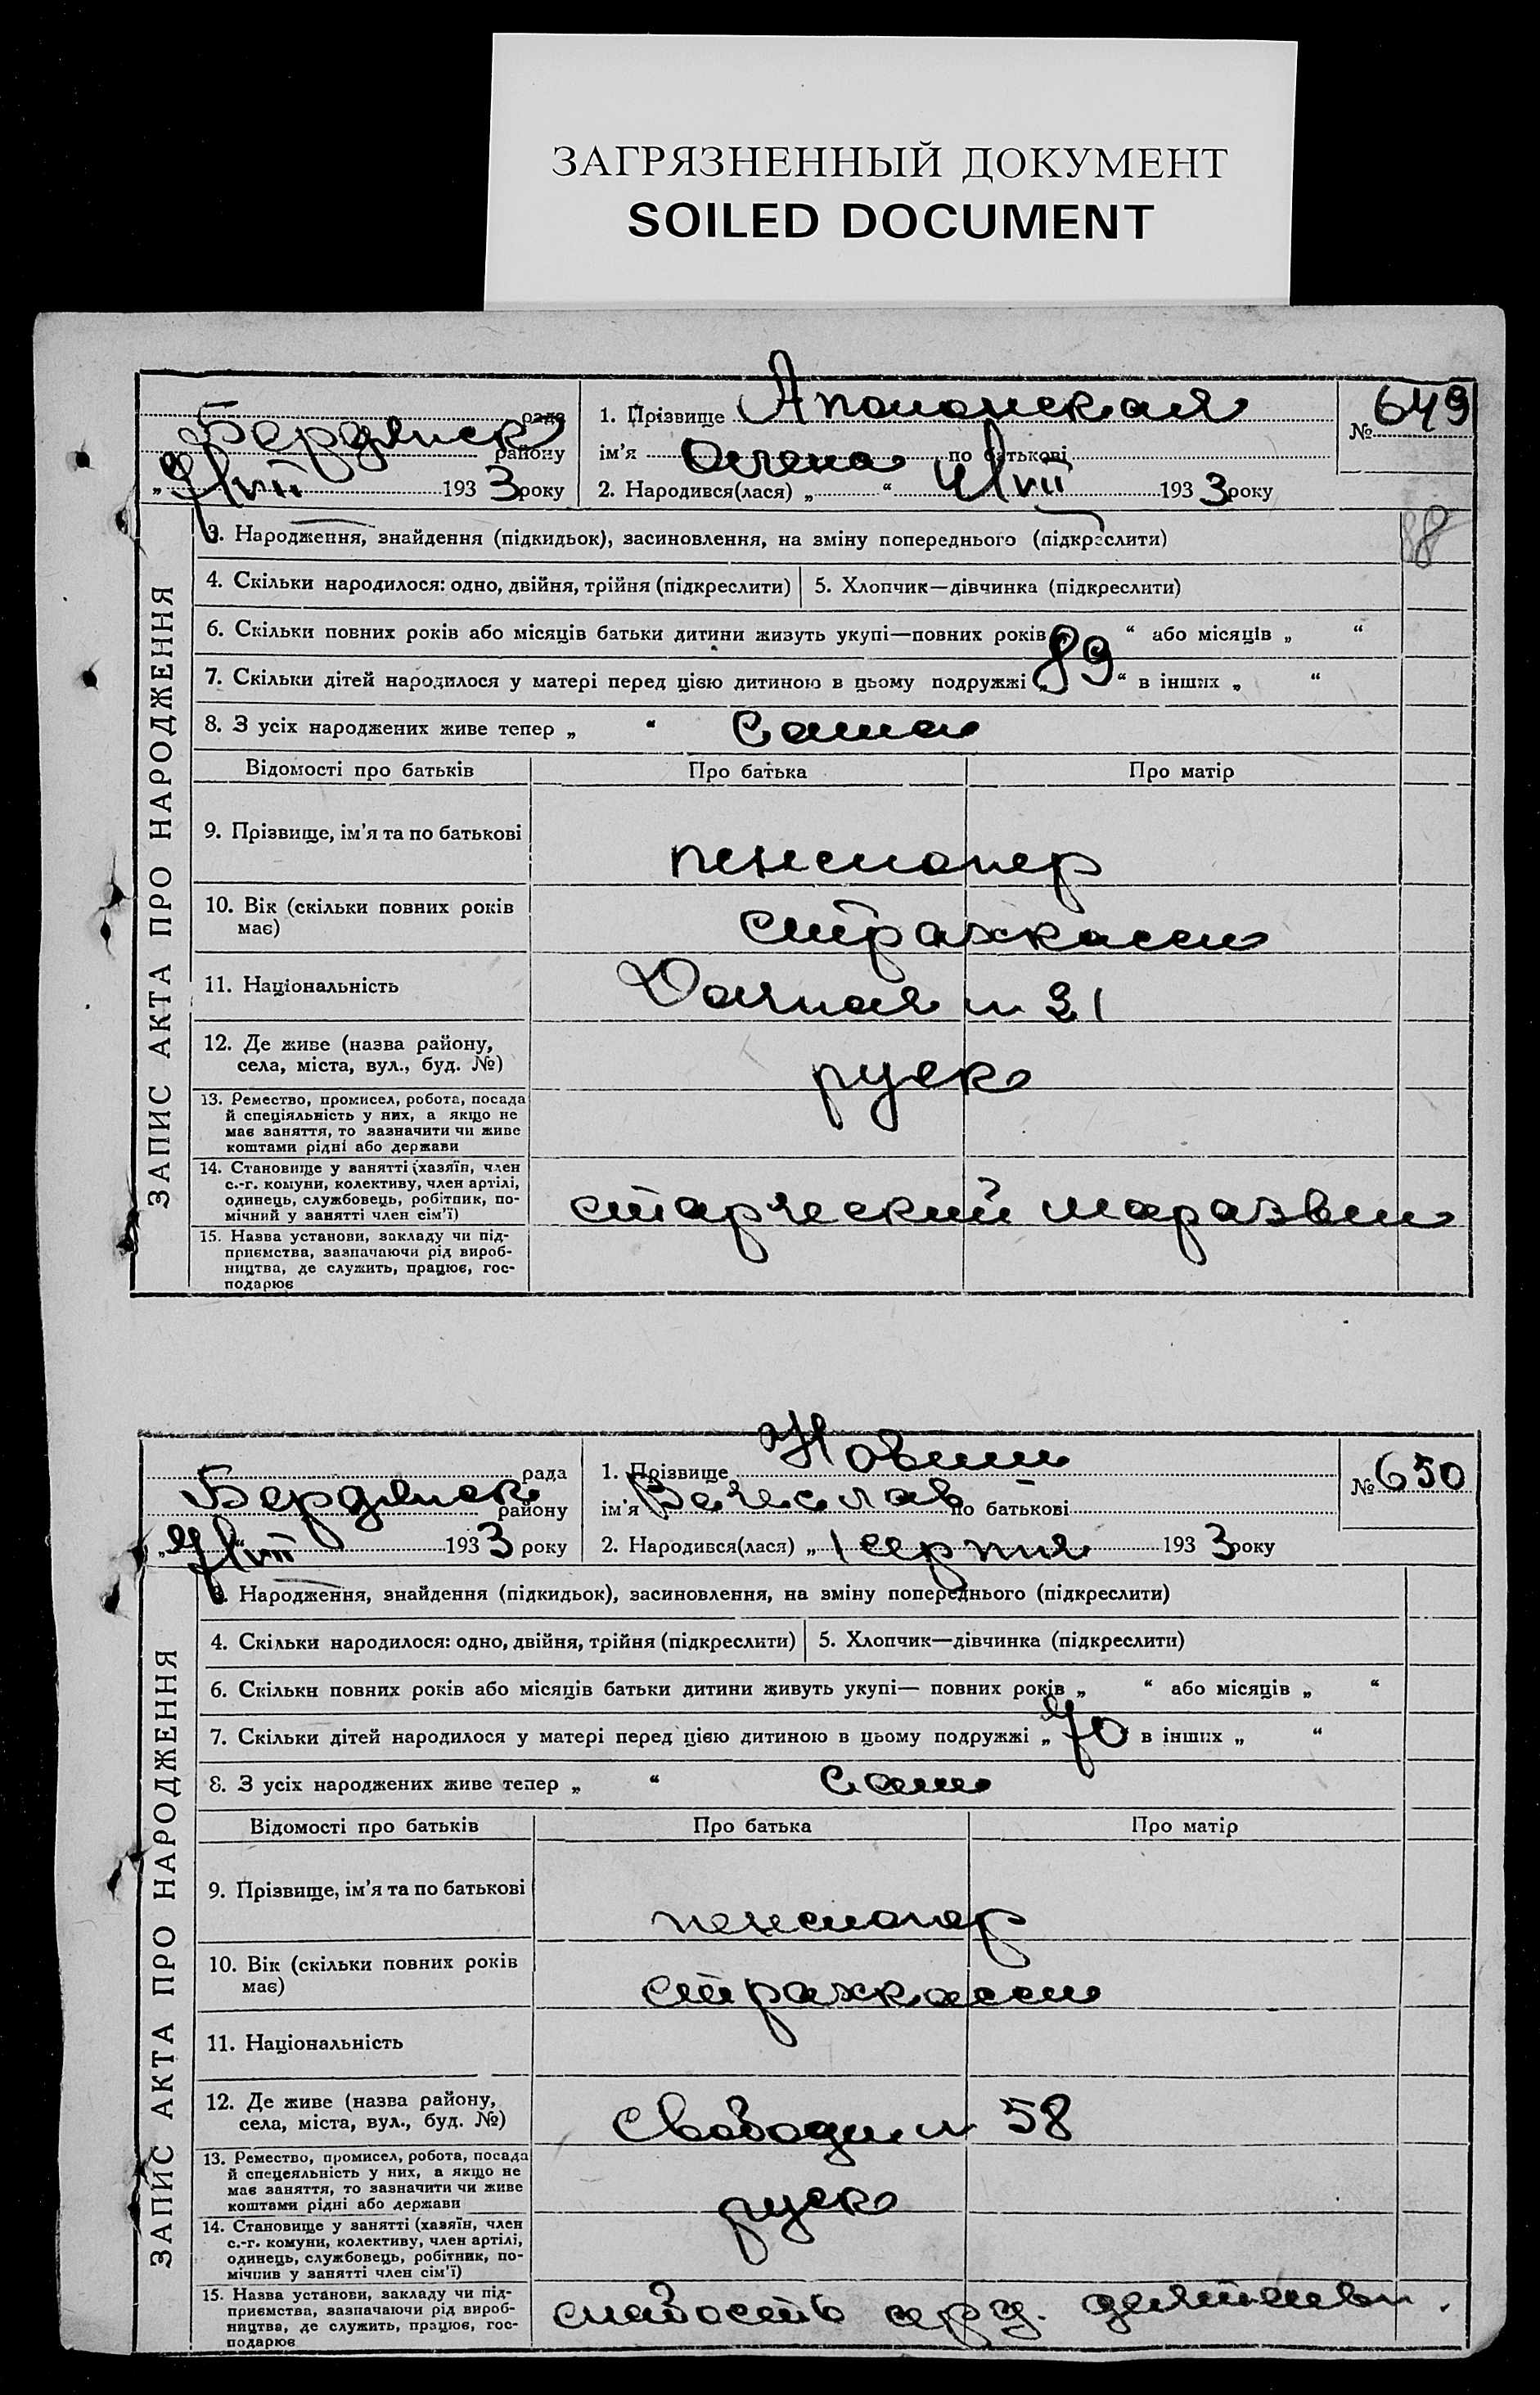 ЗАГРЯЗНЕННЫЙ ДОКУМЕНТ
SOILED DOCUMENT
рада
Бердянск району
193 3 року
1. Прізвище
ім'я Олена по батькові
2. Народився(лася) „ “ 4/VIII 193 3 року
№ 649
88
ЗАПИС АКТА ПРО НАРОДЖЕННЯ
3. Народження, знайдення (підкидьок), засиновлення, на зміну попереднього (підкреслити)
4. Скільки народилося: одно, двійня, трійня (підкреслити) 5. Хлопчик—дівчинка (підкреслити)
6. Скільки повних років або місяців батьки дитини живуть укупі—повних років „ “ або місяців „ “
7. Скільки дітей народилося у матері перед цією дитиною в цьому подружжі „ 89 “ в інших „ “
8. З усіх народжених живе тепер „ “ Сама
Відомості про батьків Про батька Про матір
9. Прізвище, ім'я та по батькові
пенсионер
10. Вік (скільки повних років
має)
страхкассы
11. Національність
Дачная № 21
12. Де живе (назва району,
села, міста, вул., буд. №)
руск
13. Ремество, промисел, робота, посада
й спеціяльність у них, а якщо не
має заняття, то зазначити чи живе
коштами рідні або держави
14. Становище у занятті (хазяїн, член
с.-г. комуни, колективу, член артілі,
одинець, службовець, робітник, по-
мічний у занятті член сім'ї)
старческий маразм
15. Назва установи, закладу чи під-
приємства, зазначаючи рід вироб-
ництва, де служить, працює, гос-
подарює
рада
Бердянск району
193 3 року
1. Прізвище
ім'я Вячеслав по батькові
2. Народився(лася) „ 1 серпня 193 3 року
№ 650
ЗАПИС АКТА ПРО НАРОДЖЕННЯ
3. Народження, знайдення (підкидьок), засиновлення, на зміну попереднього (підкреслити)
4. Скільки народилося: одно, двійня, трійня (підкреслити) 5. Хлопчик—дівчинка (підкреслити)
6. Скільки повних років або місяців батьки дитини живуть укупі— повних років „ “ або місяців „ “
7. Скільки дітей народилося у матері перед цією дитиною в цьому подружжі „ 70 в інших „ “
8. З усіх народжених живе тепер „ “ Сам
Відомості про батьків Про батька Про матір
9. Прізвище, ім'я та по батькові
пенсионер
10. Вік (скільки повних років
має)
страхкассы
11. Національність
12. Де живе (назва району,
села, міста, вул., буд. №)
Свободы № 58
13. Ремество, промисел, робота, посада
й спецеяльність у них, а якщо не
має заняття, то зазначити чи живе
коштами рідні або держави
руск
14. Становище у занятті (хазяїн, член
с.-г. комуни, колективу, член артілі,
одинець, службовець, робітник, по-
мічнив у занятті член сім'ї)
15. Назва установи, закладу чи під-
приємства, зазначаючи рід вироб-
ництва, де служить, працює, гос-
подарює
слабость серд.